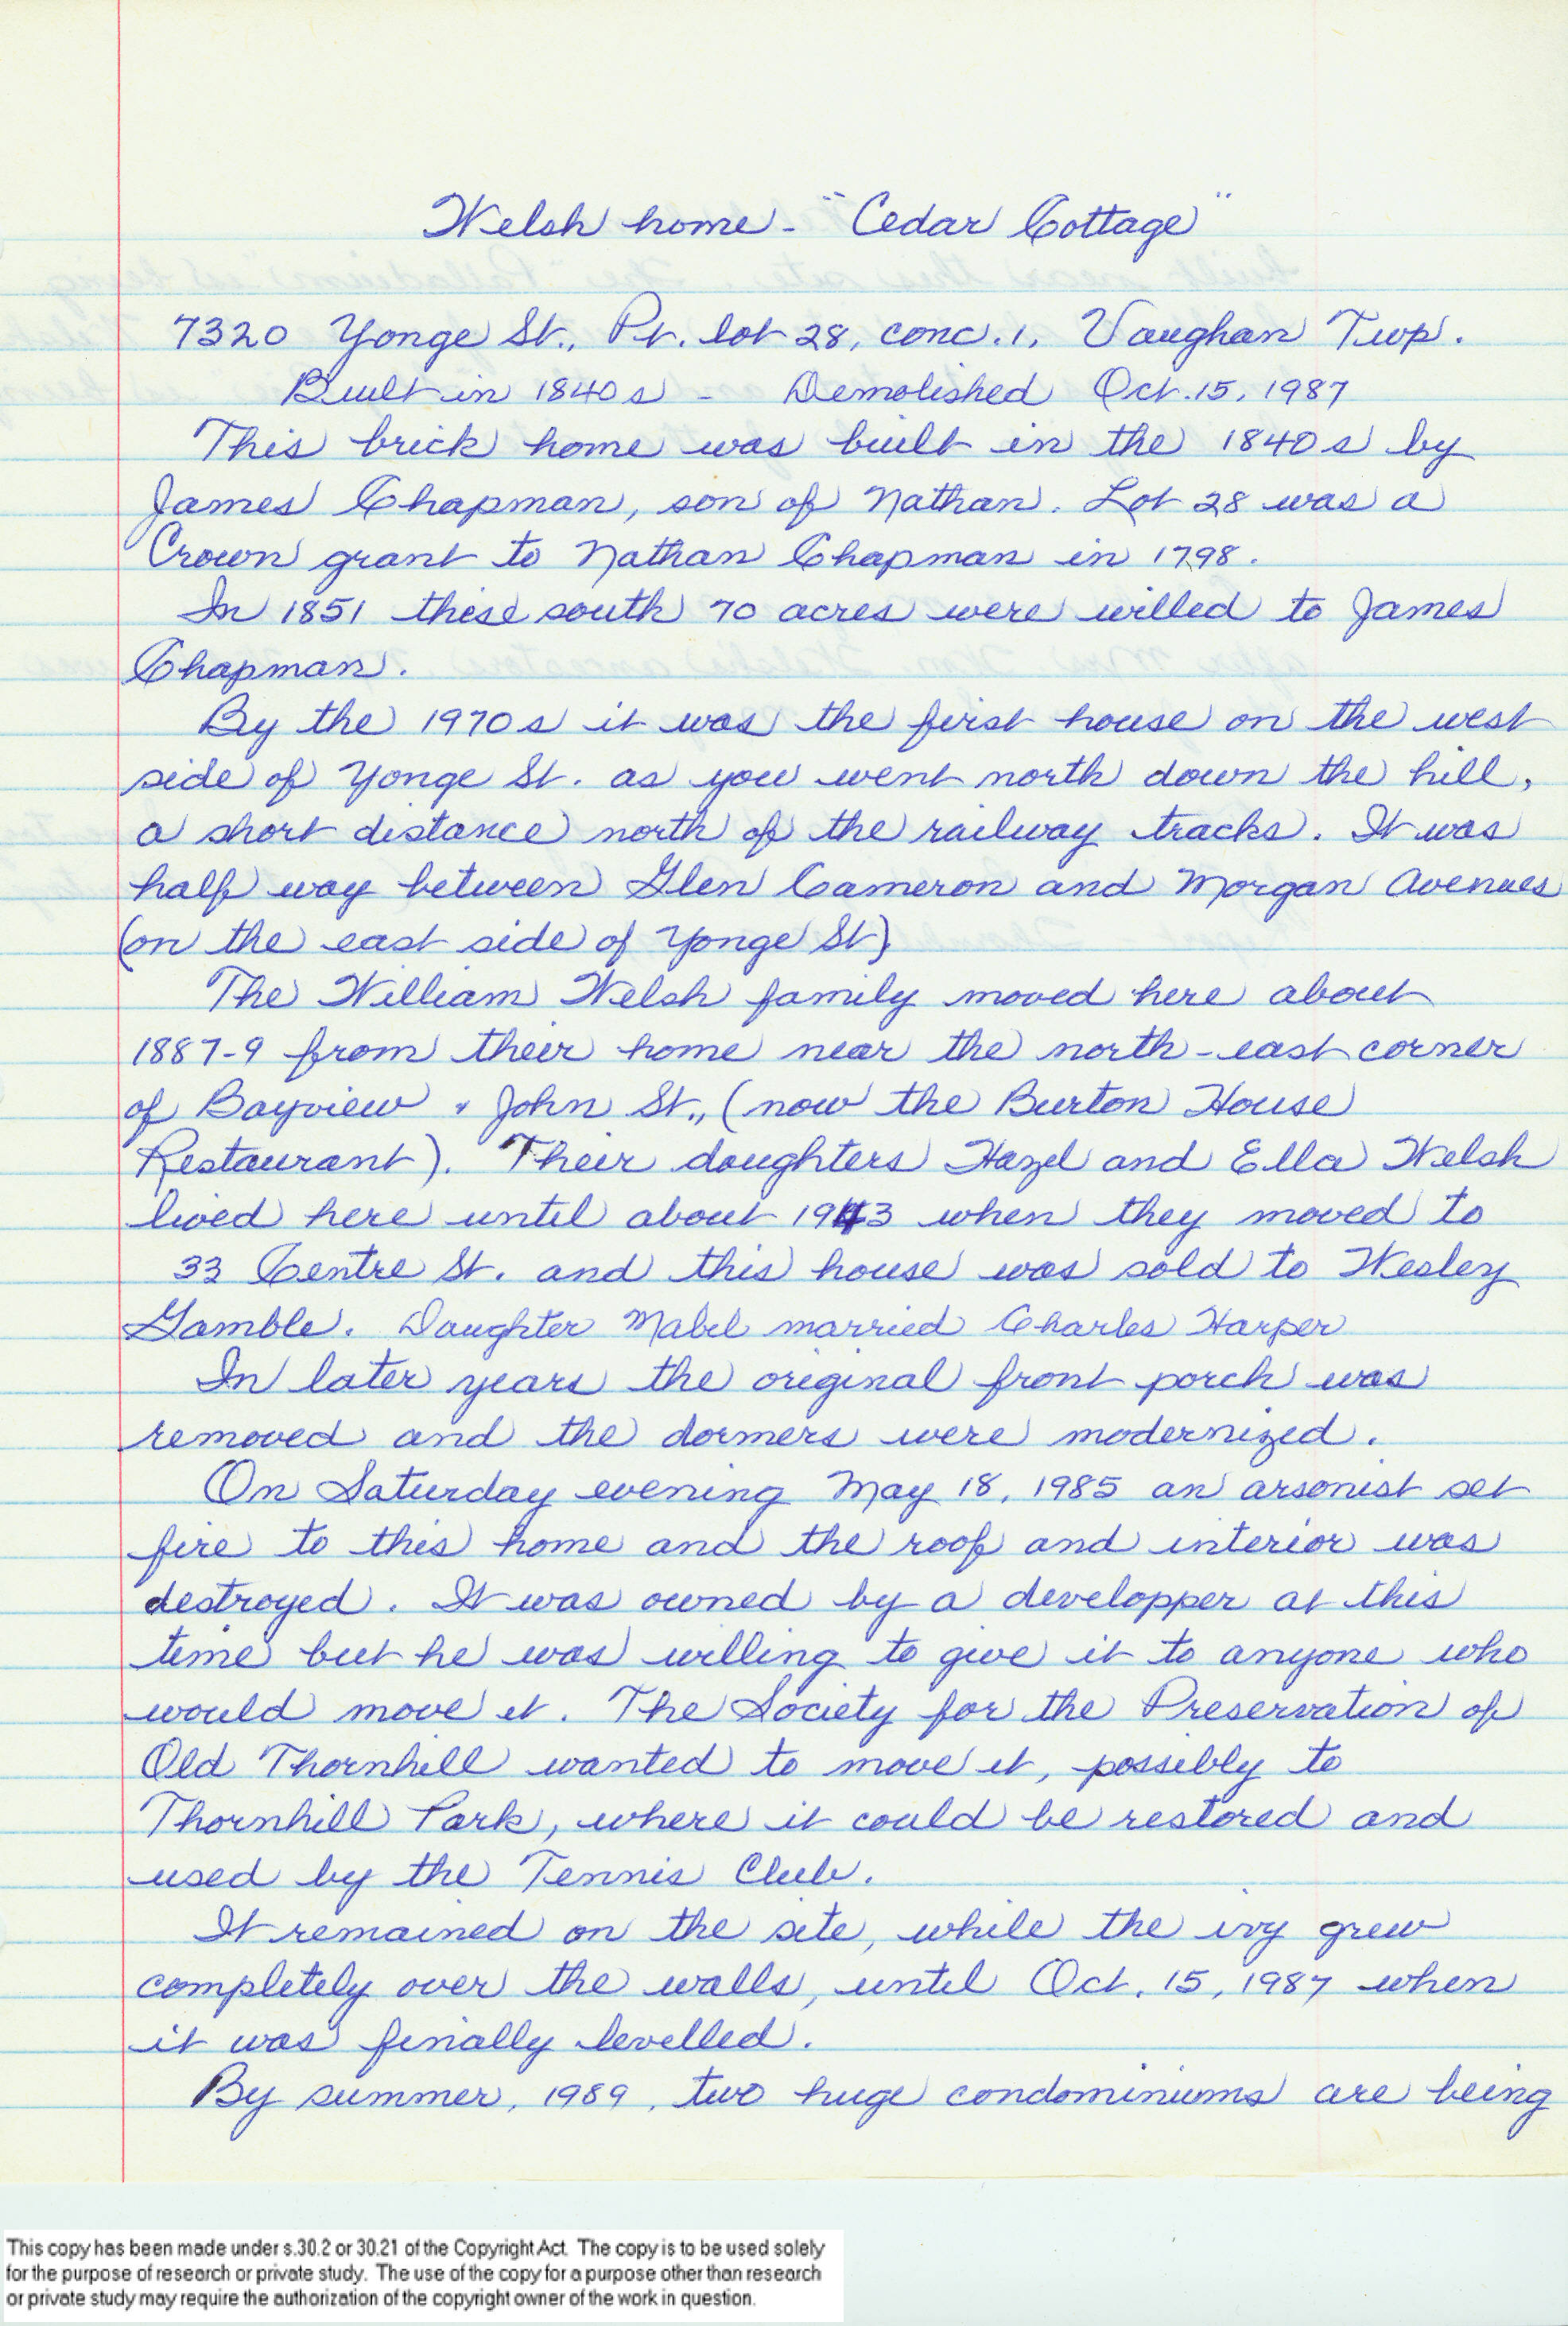 Welsh home - "Cedar Cottage"
7320 Yonge St., Pt. lot 28, conc. 1, Vaughan Twp.
Built in 1840s - Demolished Oct. 15, 1987
This brick home was built in the 1840s by
James Chapman, son of Nathan. Lot 28 was a
Crown grant to Nathan Chapman in 1798.
In 1851 these south 70 acres were willed to James
Chapman.
By the 1970s it was the first house on the west
side of Yonge St. as you went north down the hill,
a short distance north of the railway tracks. It was
half way between Glen Cameron and Morgan Avenues
(on the east side of Yonge St)
The William Welsh family moved here about
1887-9 from their home near the north-east corner
of Bayview & John St., (now the Burton House
Restaurant). Their daughters Hazel and Ella Welsh
lived here until about 1943 when they moved to
33 Centre St. and this house was sold to Wesley
Gamble. Daughter Mabel married Charles Harper
In later years the original front porch was
removed and the dormers were modernized.
On Saturday evening May 18, 1985 an arsonist set
fire to this home and the roof and interior was
destroyed. It was owned by a developper at this
time but he was willing to give it to anyone who
would move it. The Society for the Preservation of
Old Thornhill wanted to move it, possibly to
Thornhill Park, where it could be restored and
used by the Tennis Club.
It remained on the site, while the ivy grew
completely over the walls, until Oct. 15, 1987 when
it was finally levelled.
By summer, 1989, two huge condominiums are being
This copy has been made under s.30.2 or 30.21 of the Copyright Act. The copy is to be used solely
for the purpose of research or private study. The use of the copy for a purpose other than research
or private study may require the authorization of the copyright owner of the work in question.